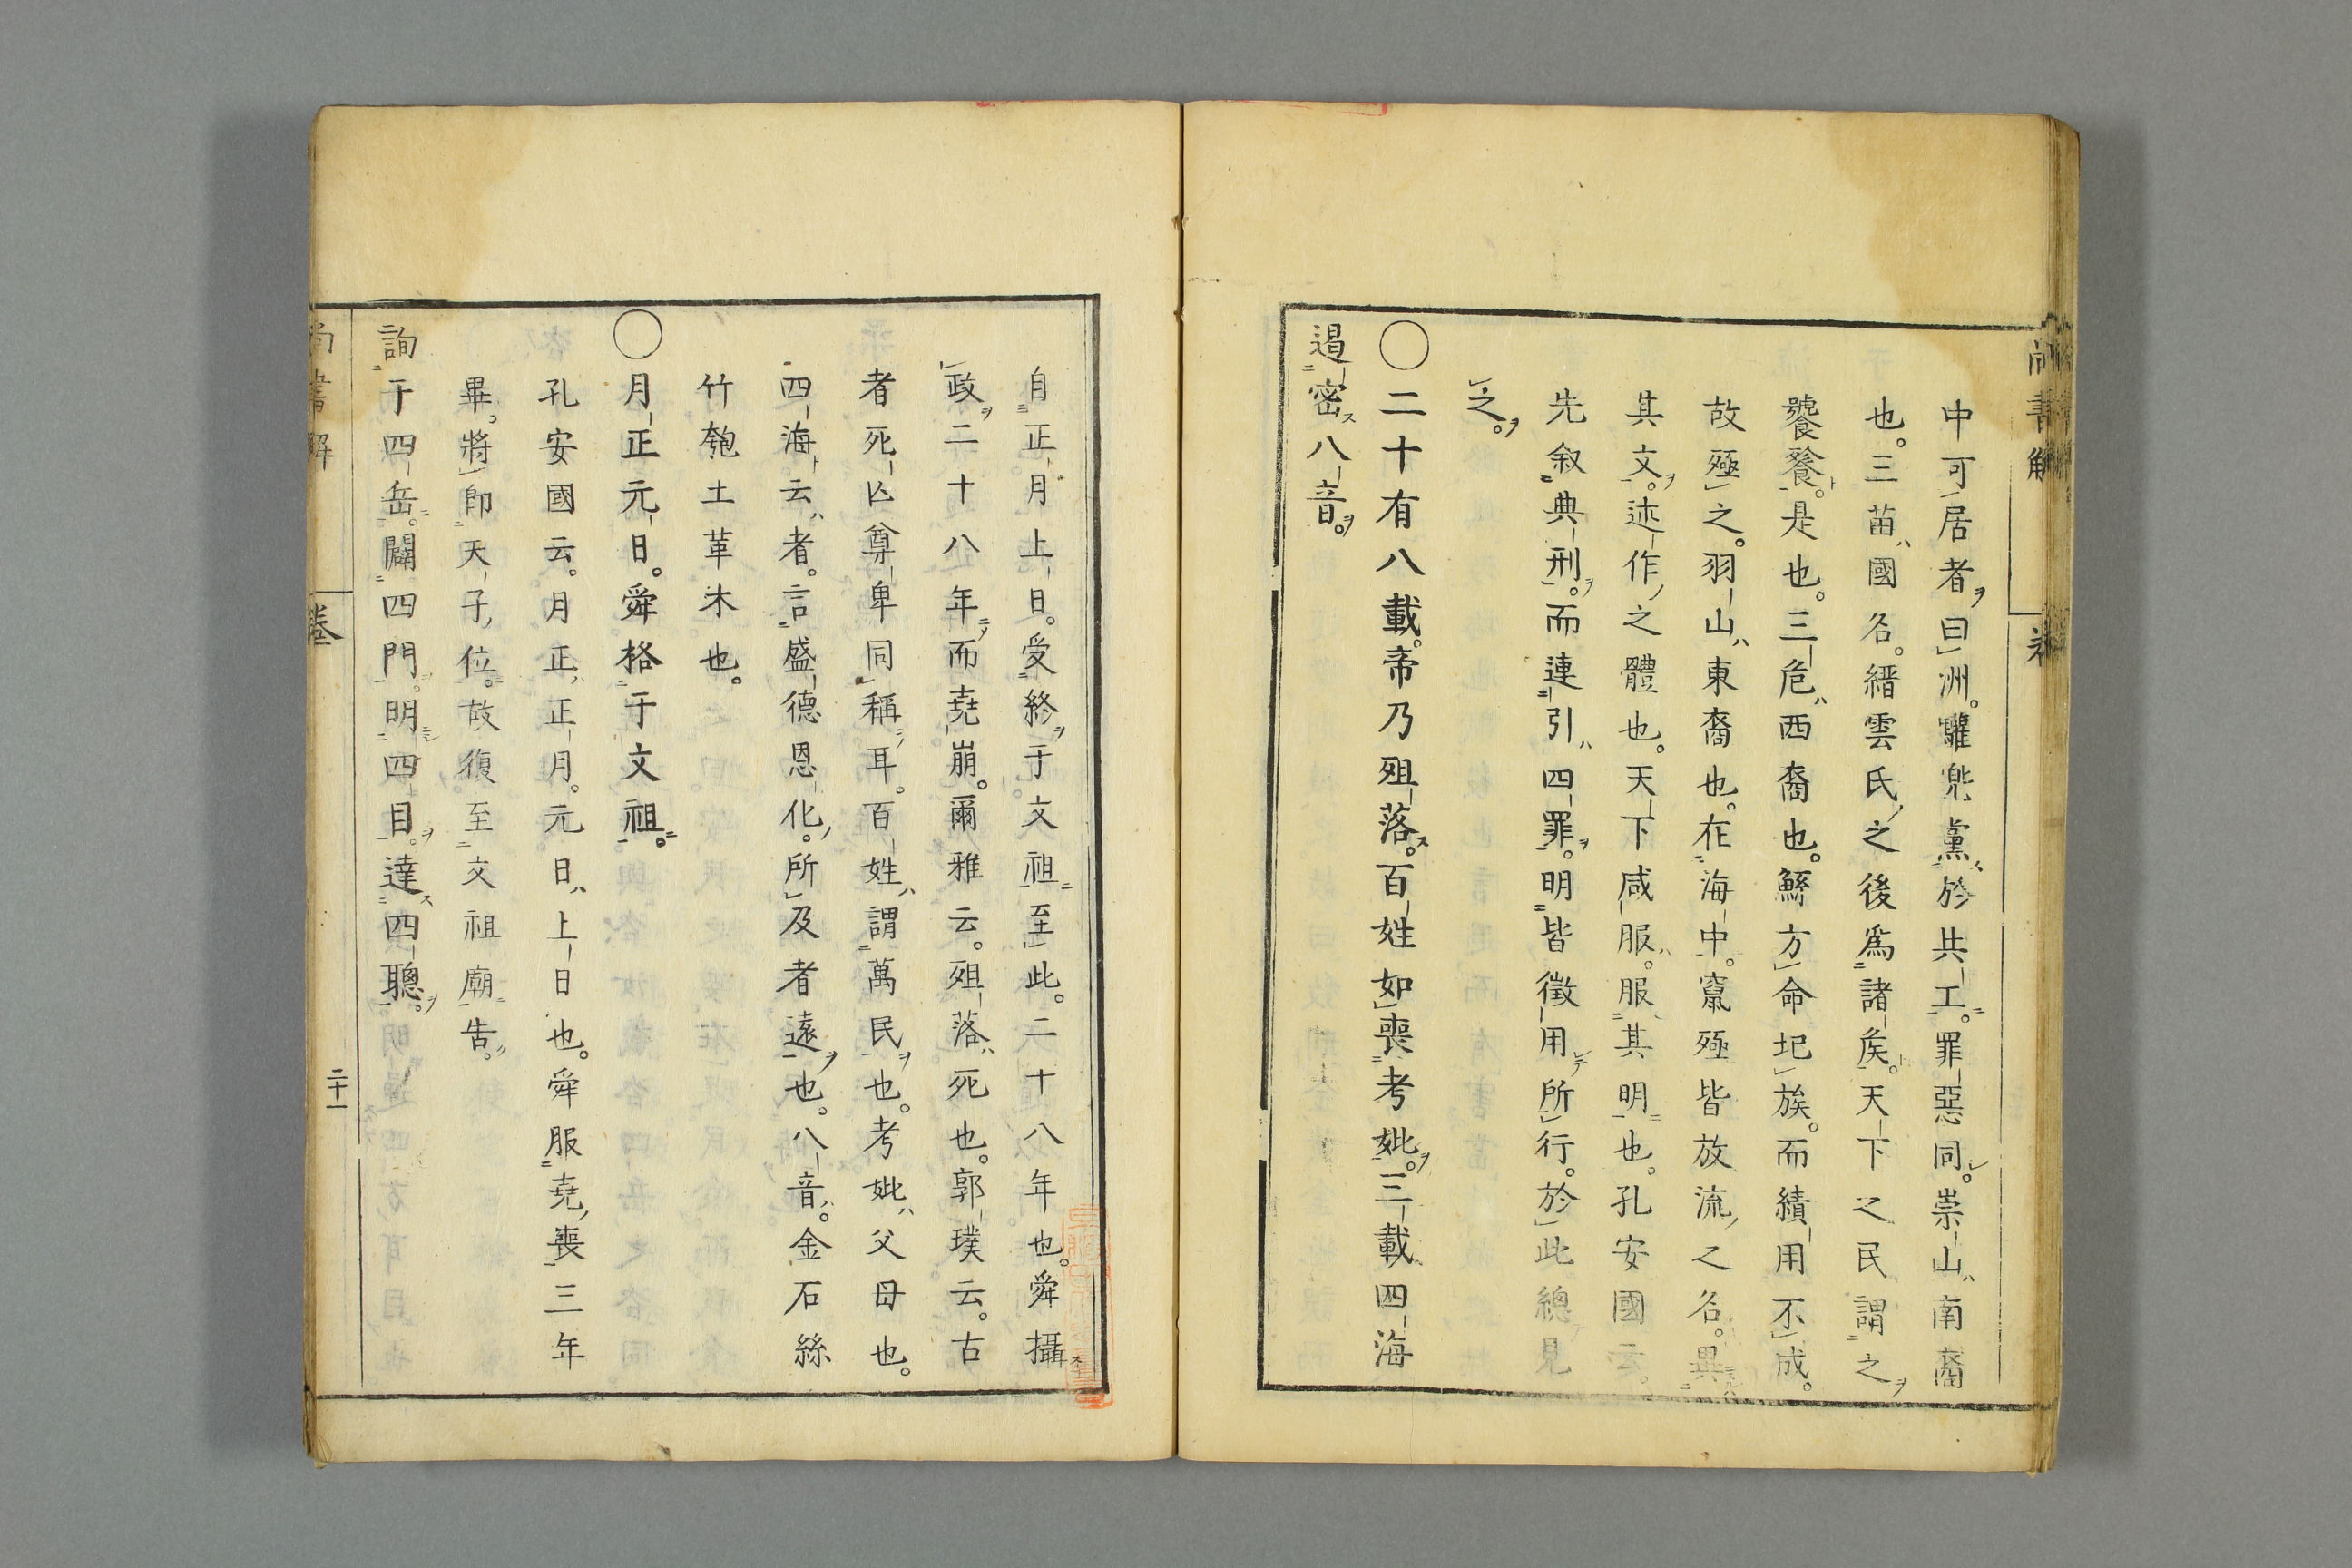 尚書解
中可居者曰洲。驩兜黨於共工。罪惡同。崇山南裔
也。三苗國名。縉雲氏之後爲諸矦。天下之民謂之
饕餮。是也。三危西裔也。鯀方命圮族。而績用不成。
故殛之。羽山東裔也。在海中。竄殛皆放流之名。異
其文。述作之體也。天下咸服。服其明也。孔安國云。
先叙典刑。而連引四罪。明皆徵用所行。於此總見
之。
○二十有八載。帝乃殂落。百姓如喪考妣。三載四海
遏密八音。
自正月上日。受終于文祖至此。二十八年也。舜攝
政二十八年而堯崩。爾雅云。殂落死也。郭璞云。古
者死亾尊卑同稱耳。百姓謂萬民也。考妣父母也。
四海云者。言盛德恩化。所及者遠也。八音。金石絲
竹匏土革木也。
○月正元日。舜格于文祖。
孔安國云。月正正月。元日上日也。舜服堯喪三年
畢。將卽天子位。故復至文祖廟告。
詢于四岳。闢四門。明四目。達四聰。
尚書解
卷
二十一